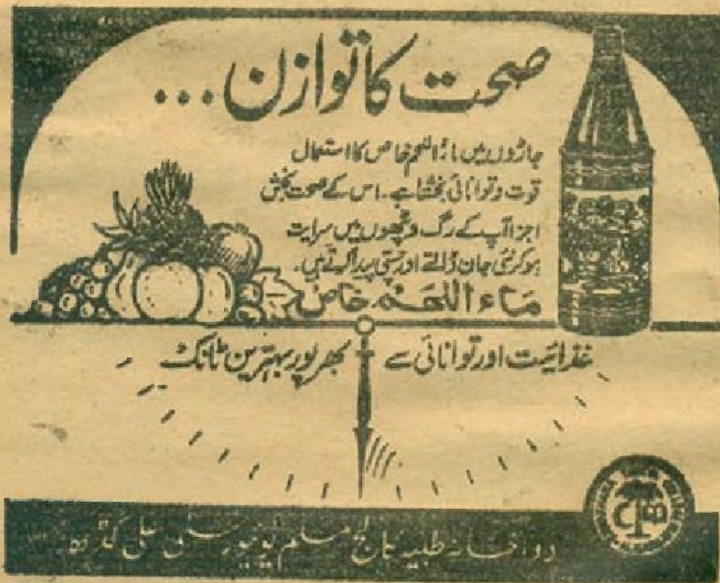 صحت کا توازن...
جاڑوں میں ماءاللحم خاص کا استعمال
قوت و توانائی بخشتا ہے۔ اس کے صحت بخش
اجزا آپ کے رگ و پٹھوں میں سرایت
ہوکر نئی جان ڈالتے اور چستی پیدا کرتے ہیں۔
ماء اللحم خاص
غذائیت اور توانائی سے بھرپور بہترین ٹانک
دواخانہ طبیہ کالج مسلم یونیورسٹی علی گڑھ